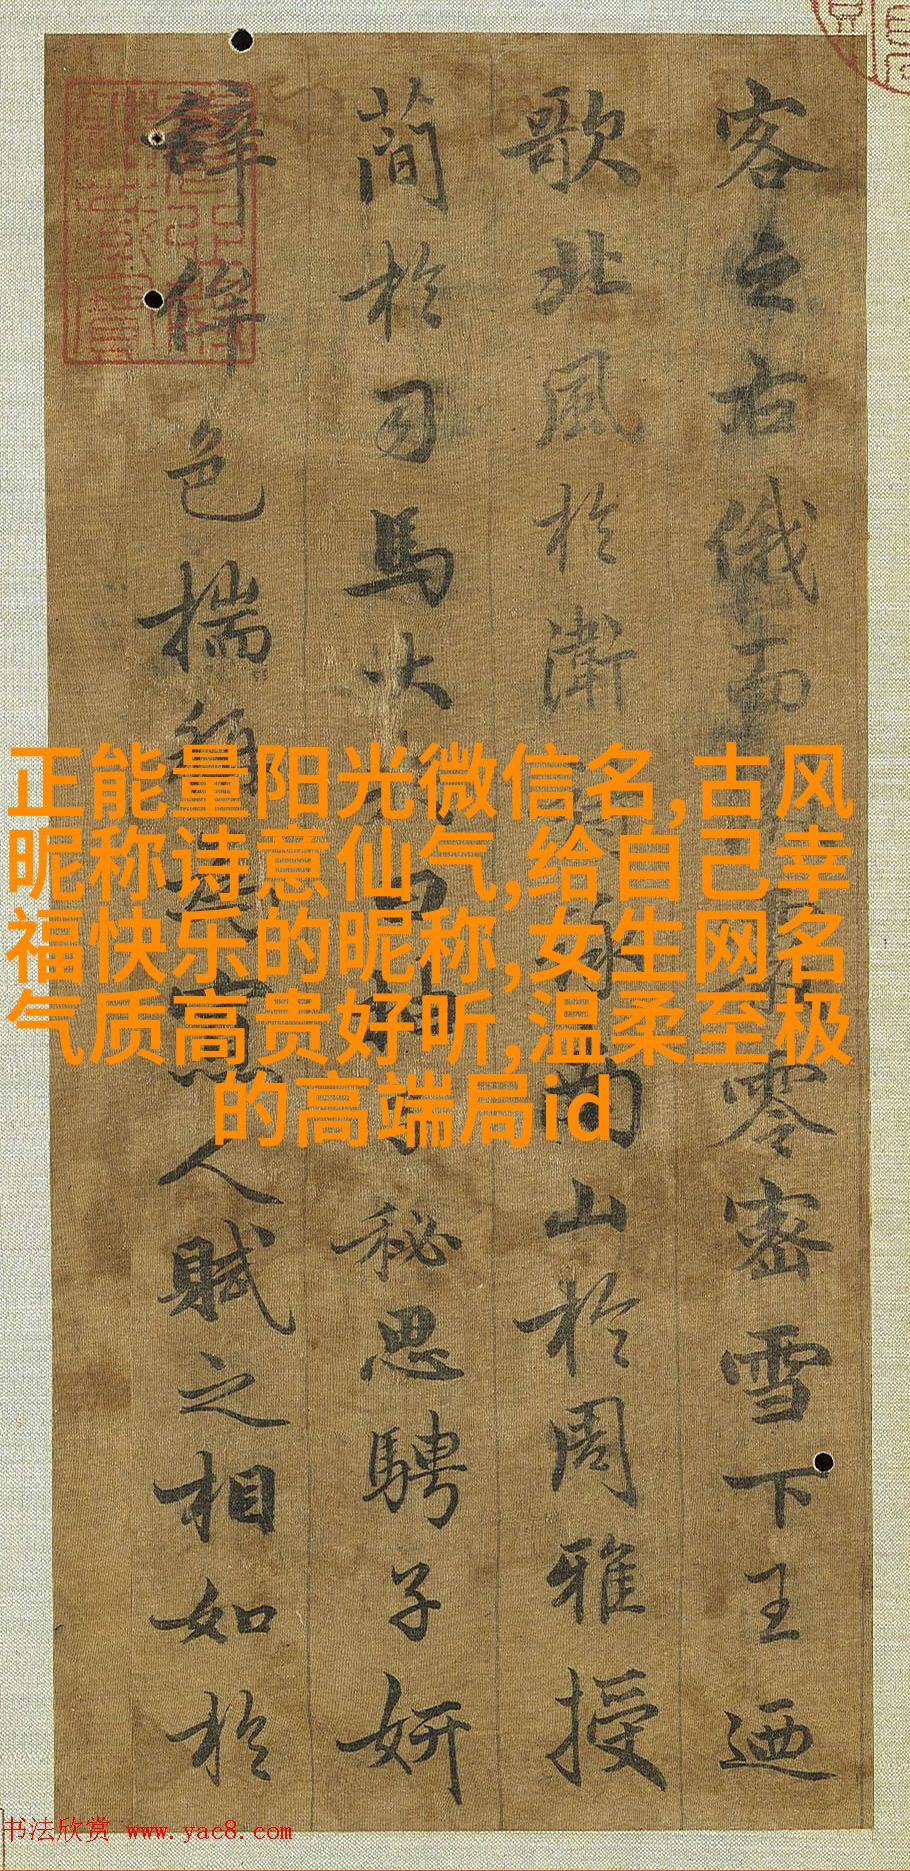 客之右俄而零密雪下王迺
歌北風於衛南山於周雅授
簡於司馬大秘思騁子妍
辭侔色揣稱人賦之相如於
正能量阳光微信名,古风
昵称诗意仙气,给自己幸
福快乐的昵称,女生网名
气质高贵好听,温柔至极
的高端局id
书法欣赏 www.yac8.com